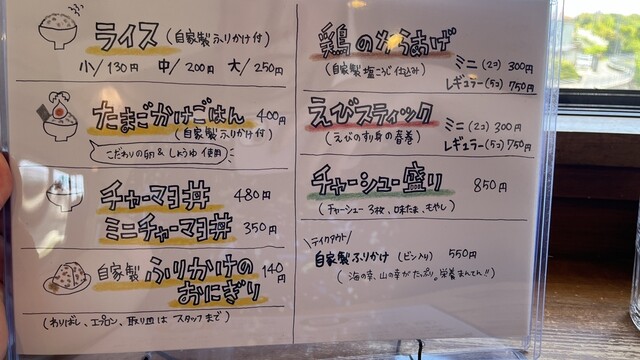 ライス (自家製ふりかけ付)
小/130円 中/200円 大/250円
たまごかけごはん 400円
(自家製ふりかけ付)
こだわりの卵&しょうゆ使用
チャーマヨ丼 480円
ミニチャーマヨ丼 350円
自家製 ふりかけの 140円
おにぎり
(わりばし、エプロン、取り皿は スタッフまで)
鶏のからあげ ミニ(2コ) 300円
(自家製塩こうじ仕込み) レギュラー(5コ) 750円
えびスティック ミニ(2コ) 300円
(えびのすり身の春巻) レギュラー(5コ) 750円
チャーシュー盛り 850円
(チャーシュー3枚、味たま、もやし)
\テイクアウト/
自家製ふりかけ (ビン入り) 550円
(海の幸、山の幸がたっぷり。栄養まんてん!!)